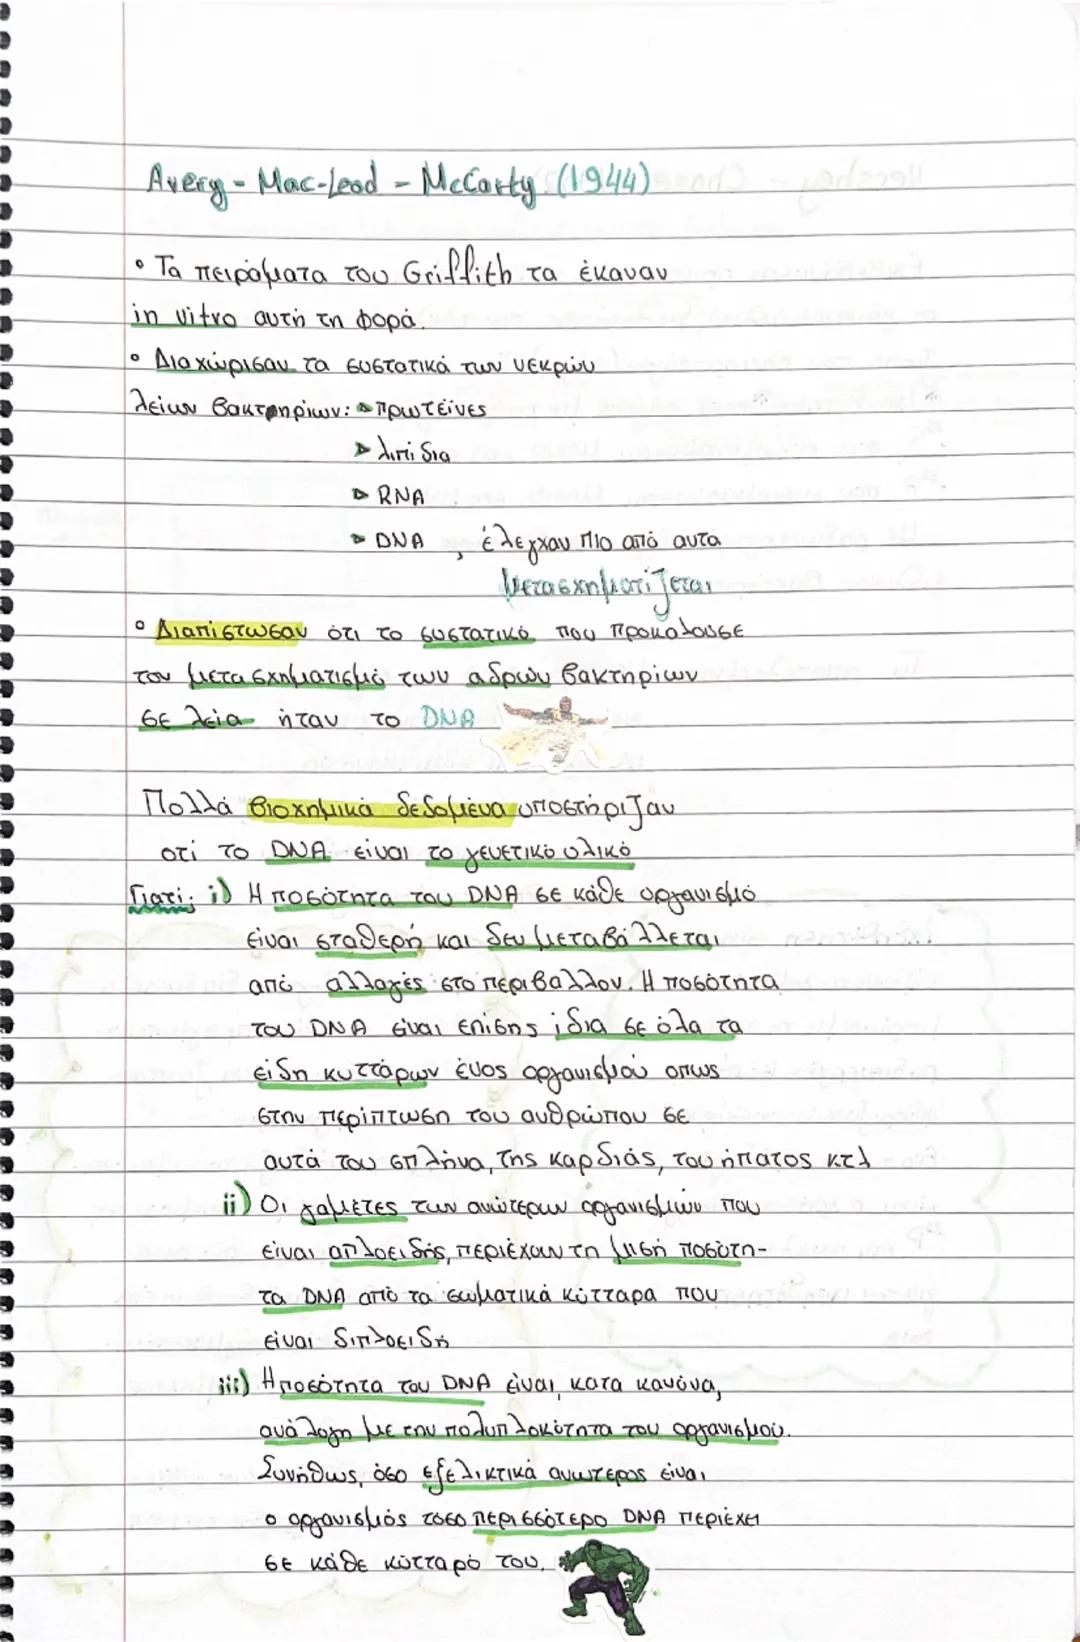 Avery - Mac-Leod - McCarty (1944)
° Τα πειράματα του Griffith τα έκαναν
in vitro αυτή τη φορά.
° Διαχώρισαν τα συστατικά των νεκρών
λείων βακτηρίων: ▷ πρωτεΐνες
▷ λιπίδια
▷ RNA
▷ DNA , έλεγχαν πιο από αυτα
μετασχηματίζεται
° Διαπίστωσαν ότι το συστατικό που προκαλουσε
τον μετασχηματισμό των αδρών βακτηρίων
σε λεία ήταν το DNA
Πολλά βιοχημικά δεδομένα υποστήριζαν
οτί το DNA είναι το γενετικό υλικό
Γιατί; i) Η ποσότητα του DNA σε κάθε οργανισμό
είναι σταθερή και δεν μεταβάλλεται
από αλλαγές στο περιβαλλον. Η ποσότητα
του DNA είναι επίσης ίδια σε όλα τα
είδη κυττάρων ένος οργανισμού οπως
στην περίπτωση του ανθρώπου σε
αυτά του σπλήνα, της καρδιάς, του ήπατος κτλ
ii) Οι γαμέτες των ανώτερων οργανισμών που
είναι απλοειδής, περιέχουν τη μισή ποσότη-
τα DNA από τα σωματικά κύτταρα που
είναι διπλοειδή
iii) Η ποσότητα του DNA είναι, κατα κανόνα,
ανάλογη με την πολυπλοκότητα του οργανισμού.
Συνήθως, όσο εξελικτικά ανωτερος είναι
ο οργανισμός τοσο περισσότερο DNA περιέχει
σε κάθε κύτταρό του.